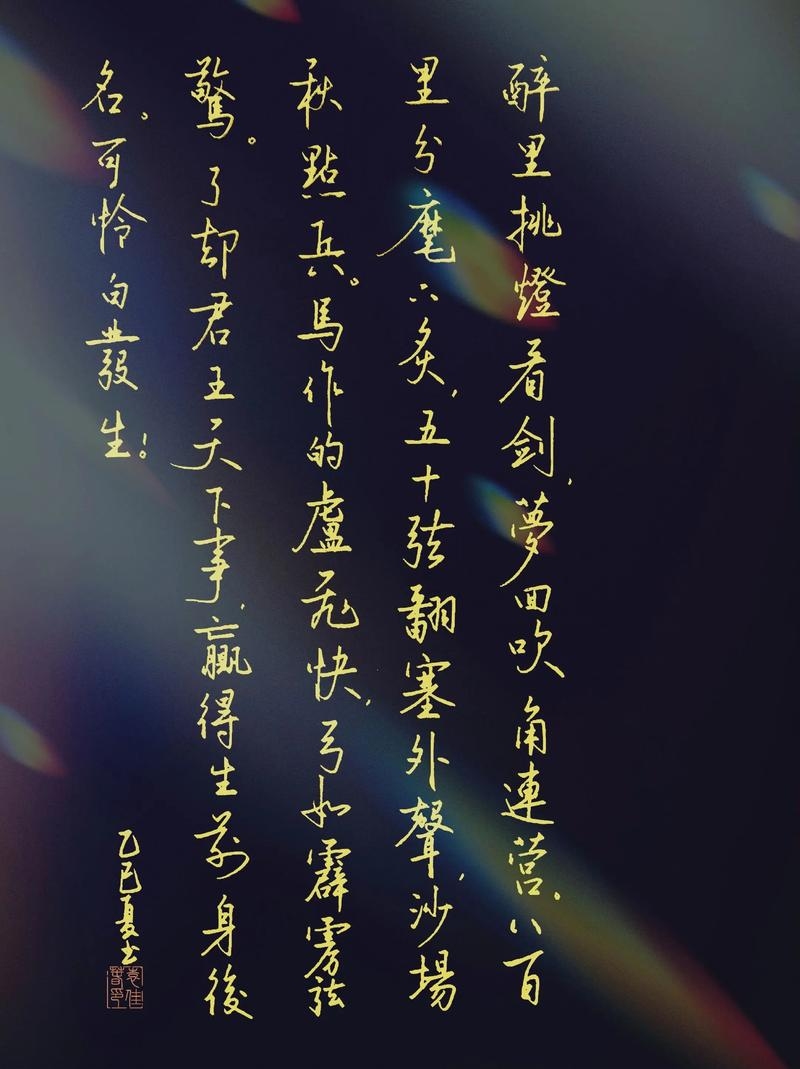 醉里挑燈看剑，夢回吹角連營。八百
里分麾下炙，五十弦翻塞外聲，沙場
秋點兵。馬作的盧飛快，弓如霹雳弦
驚。了却君王天下事，贏得生前身後
名。可怜白發生！
乙巳夏书